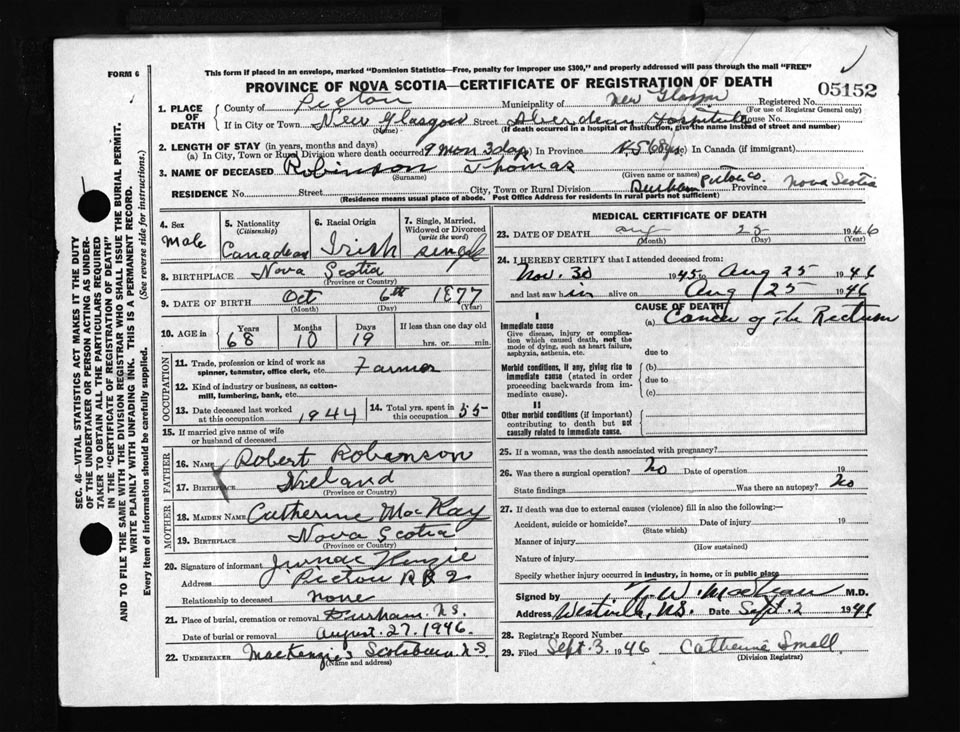 FORM 6
This form if placed in an envelope, marked "Dominion Statistics—Free, penalty for improper use $300," and properly addressed will pass through the mail "FREE"
PROVINCE OF NOVA SCOTIA—CERTIFICATE OF REGISTRATION OF DEATH
05152
1. PLACE OF DEATH
County of Pictou Municipality of New Glasgow Registered No.
(For use of Registrar General only)
If in City or Town New Glasgow Street Aberdeen Hospital House No.
(Name) (If death occurred in a hospital or institution, give the name instead of street and number)
2. LENGTH OF STAY (in years, months and days)
(a) In City, Town or Rural Division where death occurred 9 mon 3 days (b) In Province N.S 68 yrs (c) In Canada (if immigrant)
3. NAME OF DECEASED Robinson Thomas
(Surname) (Given name or names)
RESIDENCE No. Street City, Town or Rural Division Durham Pictou Co. Province Nova Scotia
(Residence means usual place of abode. Post Office Address for residents in rural parts not sufficient)
4. Sex Male
5. Nationality (Citizenship) Canadian
6. Racial Origin Irish
7. Single, Married, Widowed or Divorced (write the word) single
8. BIRTHPLACE Nova Scotia
(Province or Country)
9. DATE OF BIRTH Oct 6th 1877
(Month) (Day) (Year)
10. AGE in Years 68 Months 10 Days 19 If less than one day old hrs. or min.
OCCUPATION
11. Trade, profession or kind of work as spinner, teamster, office clerk, etc. Farmer
12. Kind of industry or business, as cotton-mill, lumbering, bank, etc.
13. Date deceased last worked at this occupation 1944
14. Total yrs. spent in this occupation 55
15. If married give name of wife or husband of deceased
FATHER
16. NAME Robert Robinson
17. BIRTHPLACE Ireland
(Province or Country)
MOTHER
18. MAIDEN NAME Catherine MacKay
19. BIRTHPLACE Nova Scotia
(Province or Country)
20. Signature of informant
Address Pictou RR 2
Relationship to deceased none
21. Place of burial, cremation or removal Durham. N.S.
Date of burial or removal August. 27. 1946.
22. UNDERTAKER MacKenzie's Scotsburn N.S.
(Name and address)
MEDICAL CERTIFICATE OF DEATH
23. DATE OF DEATH Aug 25 1946
(Month) (Day) (Year)
24. I HEREBY CERTIFY that I attended deceased from:
Nov. 30 1945 to Aug 25 1946
and last saw him alive on Aug 25 1946
CAUSE OF DEATH
I
Immediate cause
Give disease, injury or complication which caused death, not the mode of dying, such as heart failure, asphyxia, asthenia, etc.
(a) Cancer of the Rectum
due to
Morbid conditions, if any, giving rise to immediate cause (stated in order proceeding backwards from immediate cause).
(b)
due to
(c)
II
Other morbid conditions (if important) contributing to death but not causally related to immediate cause.
25. If a woman, was the death associated with pregnancy?
26. Was there a surgical operation? No Date of operation 19
State findings Was there an autopsy? No
27. If death was due to external causes (violence) fill in also the following:—
Accident, suicide or homicide? Date of injury 19
(State which)
Manner of injury
(How sustained)
Nature of injury
Specify whether injury occurred in industry, in home, or in public place
Signed by M.D.
Address Westville, N.S. Date Sept. 2 1946
28. Registrar's Record Number
29. Filed Sept. 3. 1946 Catherine Small
(Division Registrar)
SEC. 46—VITAL STATISTICS ACT MAKES IT THE DUTY
OF THE UNDERTAKER OR PERSON ACTING AS UNDER-
TAKER TO OBTAIN ALL THE PARTICULARS REQUIRED
IN THE "CERTIFICATE OF REGISTRATION OF DEATH"
AND TO FILE THE SAME WITH THE DIVISION REGISTRAR WHO SHALL ISSUE THE BURIAL PERMIT.
WRITE PLAINLY WITH UNFADING INK. THIS IS A PERMANENT RECORD.
Every item of information should be carefully supplied. (See reverse side for instructions.)